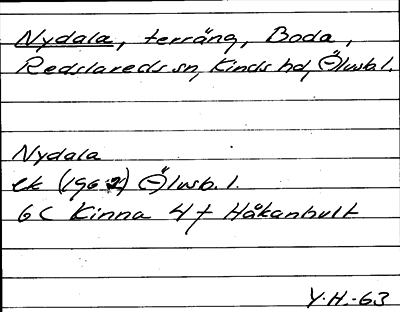 Nydala, terräng, Boda,
Redslareds sn, Kinds hd, Älvsb.l.
Nydala
ek (1962) Älvsb. l.
6C Kinna 4f Håkanhult
Y.H.-63